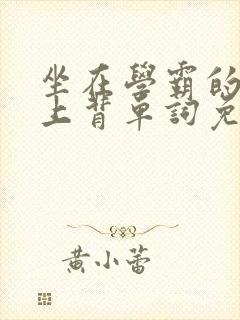 坐在學霸的
上背單詞免
黃小蕾